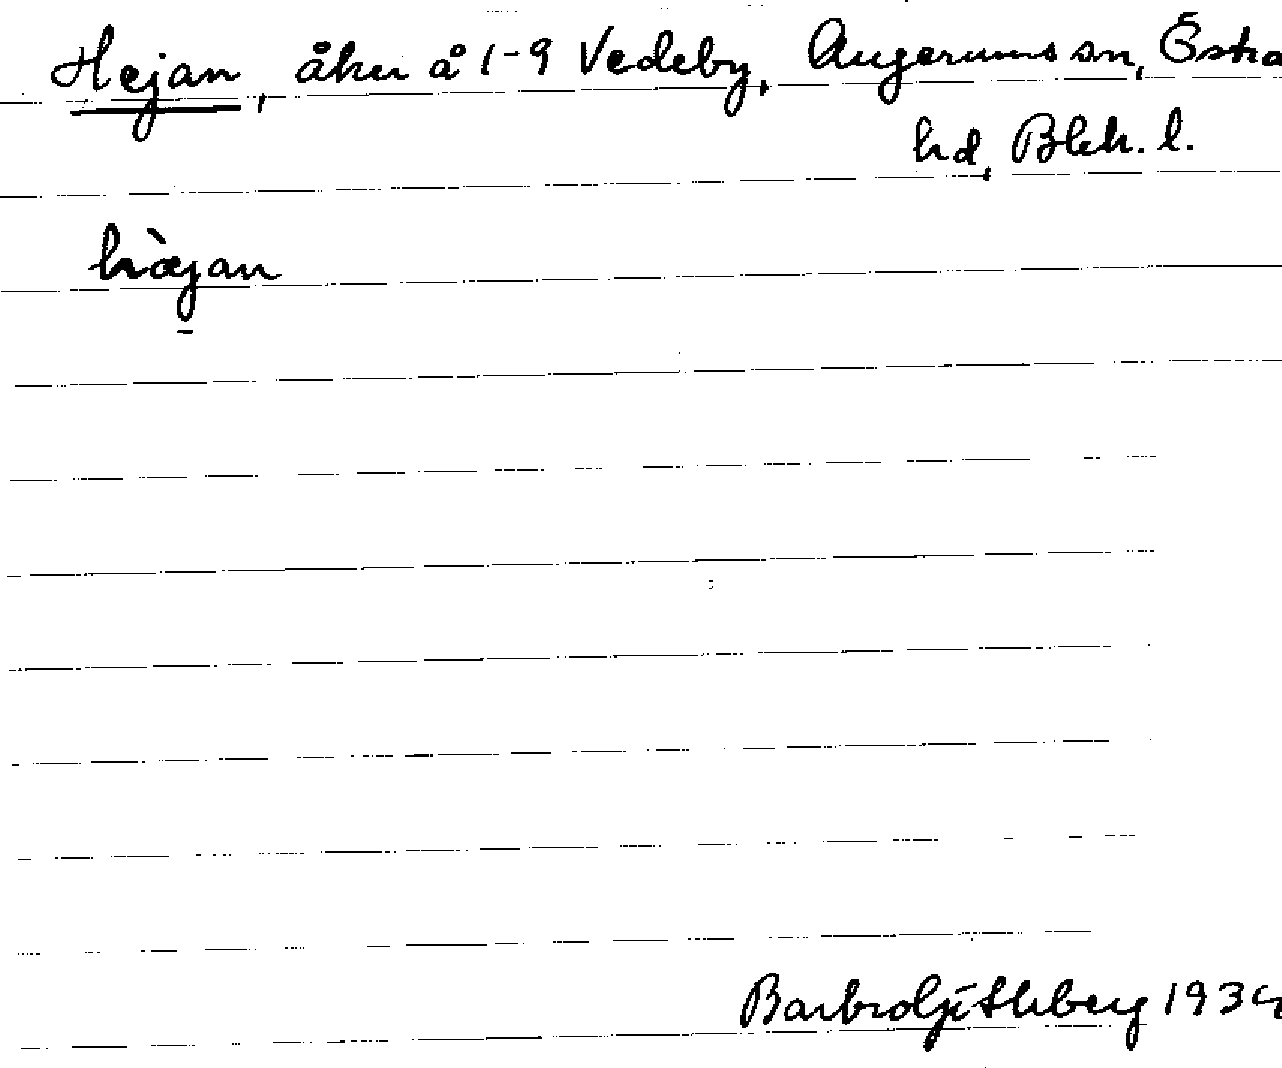 Hejan, åker å 1-9 Vedeby, Augerums sn, Östra
hd, Blek. l.
hæ̀jan
Barbro 193